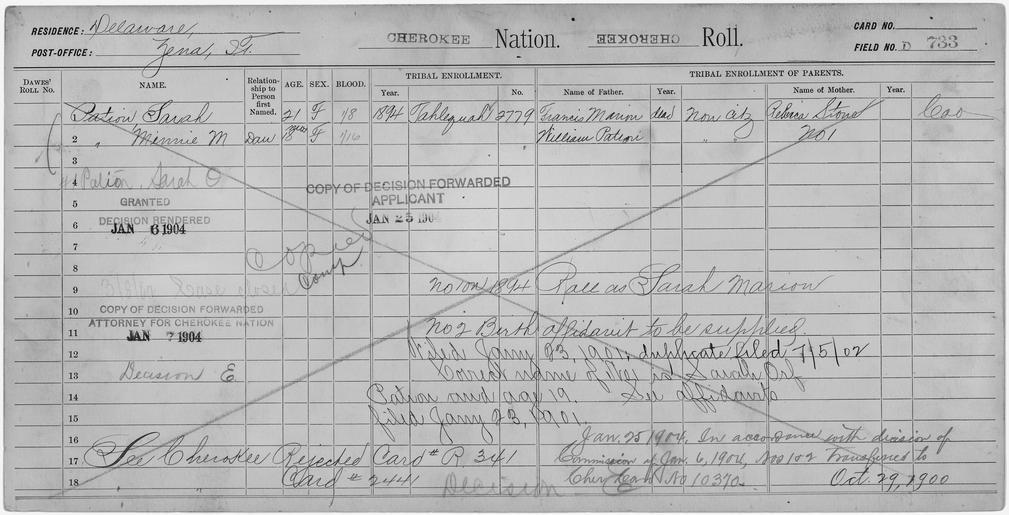 RESIDENCE: Delaware,
POST-OFFICE: Zena, I.T.
CHEROKEE Nation. CHEROKEE Roll,
CARD NO.
FIELD NO. D 733
DAWES' ROLL NO. NAME. Relationship to Person first Named. AGE. SEX. BLOOD. TRIBAL ENROLLMENT. Year. No. TRIBAL ENROLLMENT OF PARENTS. Name of Father. Year. Name of Mother. Year.
Pation Sarah 21 F 1/8 1894 Tahlequah 2779 Francis Marion dead Non Citz Rebecca Stone
2 " Minnie M Dau F 1/16 William Pation " "
3
4 Pation, Sarah O
COPY OF DECISION FORWARDED
APPLICANT
JAN 25 1904
5 GRANTED
DECISION RENDERED
6 JAN 6 1904
7
Copied
8 Comp
9 No 1 on 1894 Roll as Sarah Marion
10 COPY OF DECISION FORWARDED
ATTORNEY FOR CHEROKEE NATION
11 JAN 7 1904 No 2 Birth affidavit to be supplied.
12 Filed Jany 23, 1901, duplicate filed, 7/5/02
13 Decision E Correct name of No 1 is Sarah
14 Pation and age 19. See affidavits
15 filed Jany 23, 1901.
16 Jan. 25 1904, In accordance with decision of
17 See Cherokee Rejected Card # R. 341 Commission of Jan. 6, 1904, Nos 1 & 2 transferred to
18 Card # 2441 Decision E Cher. Card No 10370. Oct. 29, 1900